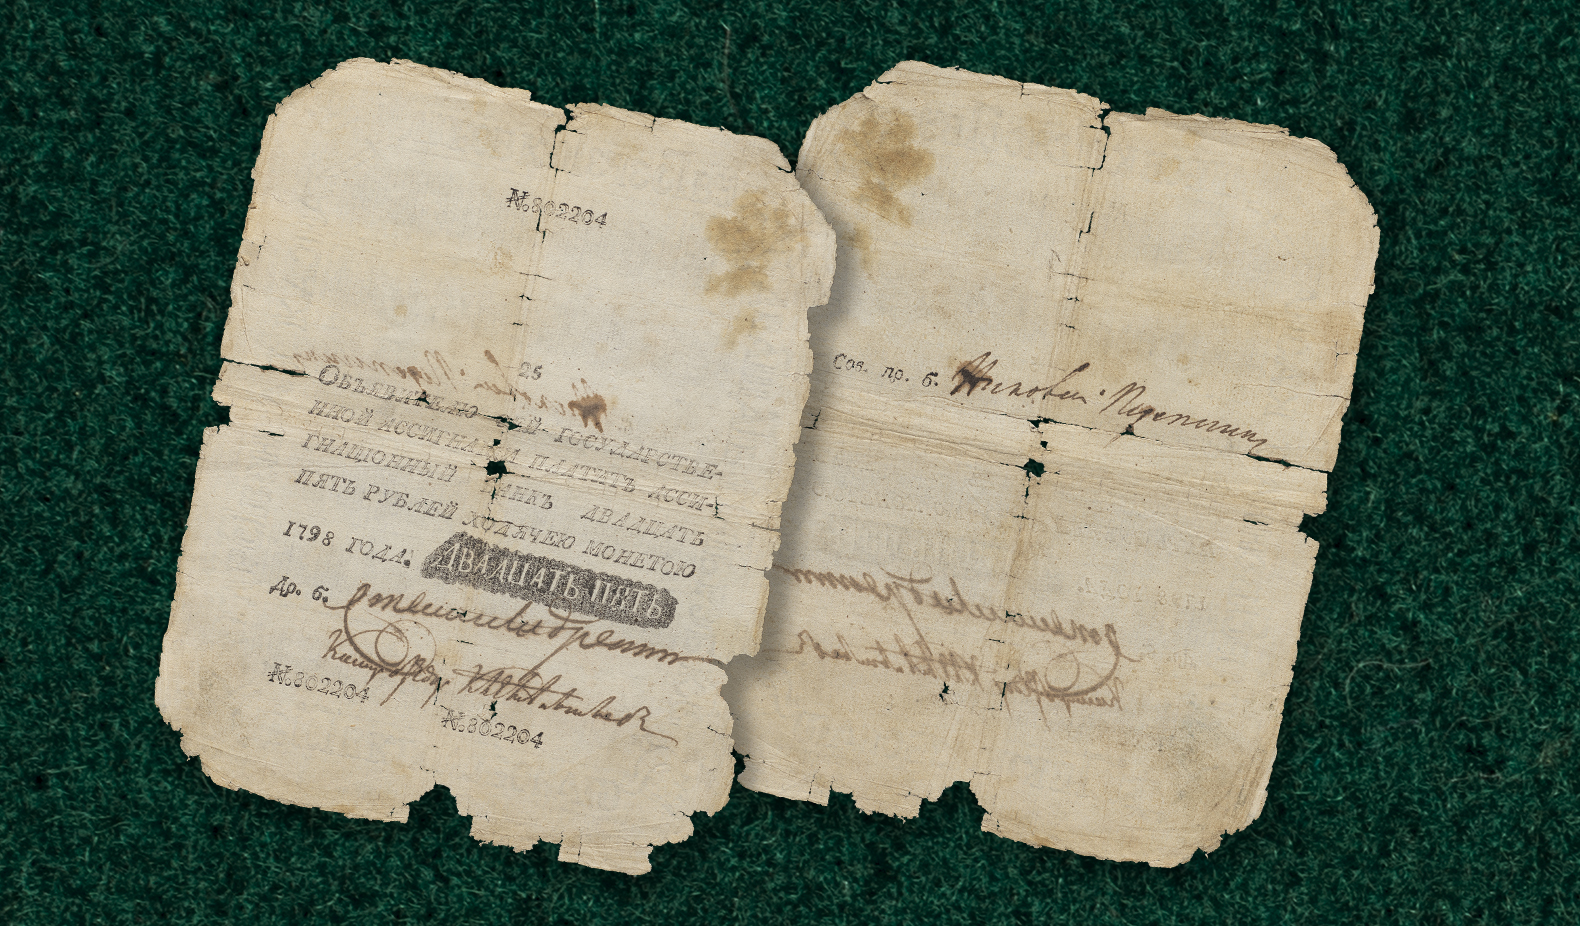 №802204
25
Объявителю сей государстве-
нной ассигнаціи платитъ асси-
гнаціонный банкъ двадцать
пять рублей ходячею монетою
1798 года. ДВАДЦАТЬ ПЯТЬ
Др. б.
№802204
№802204
Сов. пр. б.